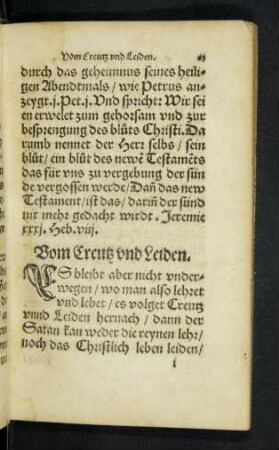 Vom Creutz vnd Leiden.
durch das geheimnus seines heili-
gen Abendtmals / wie Petrus an-
zeygt. j. Pet. j. Vnd spricht: Wir sei
en erwelet zum gehorsam vnd zur
besprengung des blůts Christi. Da
rumb nennet der Herr selbs / sein
blůt / ein blůt des newē Testamēts
das für vns zu vergebung der sün
de vergossen werde / Dañ das new
Testament / ist das / dariñ der sünd
nit mehr gedacht wirdt. Jeremie
xxxj. Heb. viij.
Vom Creutz vnd Leiden.
ES bleibt aber nicht vnder-
wegen / wo man also lehret
vnd lebet / es volget Creutz
vnnd Leiden hernach / dann der
Satan kan weder die reynen lehr /
noch das Christlich leben leiden /
i